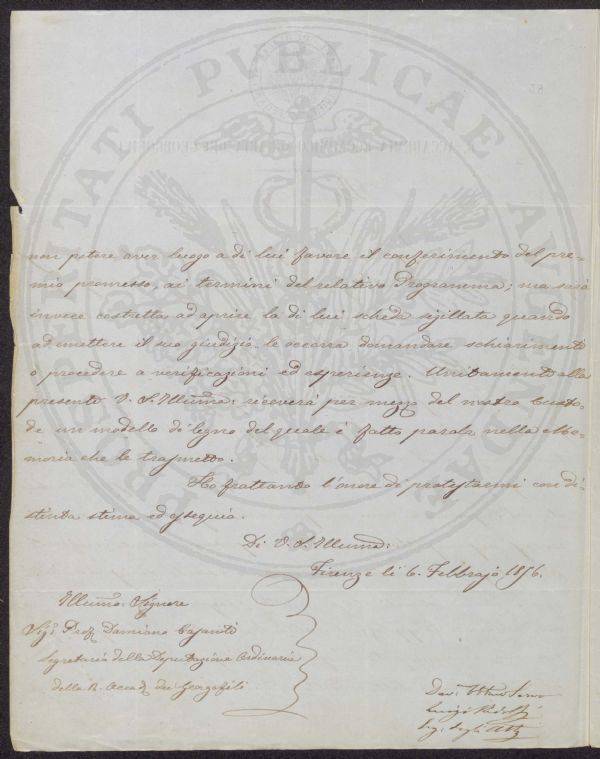 PROSPERITATI PUBLICAE AUGENDAE
non potere aver luogo a di lui favore il conferimento del pre-
mio promesso, ai termini del relativo Programma; ma sarà
invece costretta ad aprire la di lui scheda sigillata quando
ad emettere il suo giudizio le occorra domandare schiarimenti
o procedere a verificazioni ed esperienze. Unitamente alla
presente V. S. Illuma: riceverà per mezzo del nostro Custo-
de un modello di legno del quale è fatto parola nella Me-
moria che le trasmetto.
Ho frattanto l'onore di protestarmi con di-
stinta stima ed ossequio.
Di V. S. Illuma:
Firenze li 6. Febbrajo 1856.
Illumo: Signore
Sigr. Prof. Damiano Casanti
Segretario della Deputazione Ordinaria
della R. Accad. dei Georgofili
Luigi Ridolfi
Seg. degli Atti